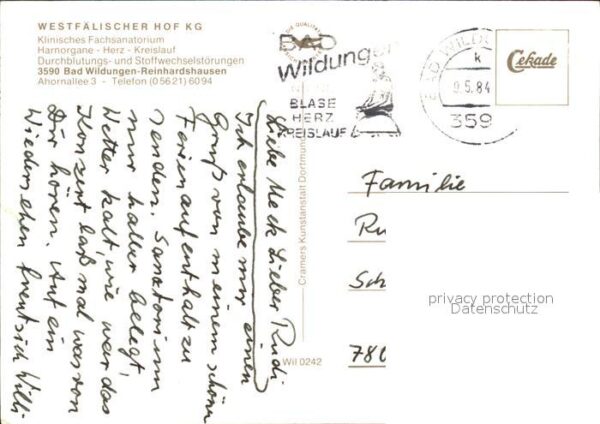 WESTFÄLISCHER HOF KG
Klinisches Fachsanatorium
Harnorgane - Herz - Kreislauf
Durchblutungs- und Stoffwechselstörungen
3590 Bad Wildungen-Reinhardshausen
Ahornallee 3 - Telefon (05621) 6094
BAD
Wildungen
BLASE
HERZ
KREISLAUF
BAD WILDU
k
9.5.84
359
Cekade
Liebe Meck Lieber Rudi
Ich erlaube mir einen
Gruß von meinem schönen
Ferienaufenthalt zu
senden. Sanatorium
nur halber belegt,
Wetter kalt, wie war das
Konzert laß mal was von
Dir hören. Auf ein
Wiedersehen freut sich Willi
Cramers Kunstanstalt Dortmund
Wil 0242
Familie
Ru
Sch
privacy protection
Datenschutz
780